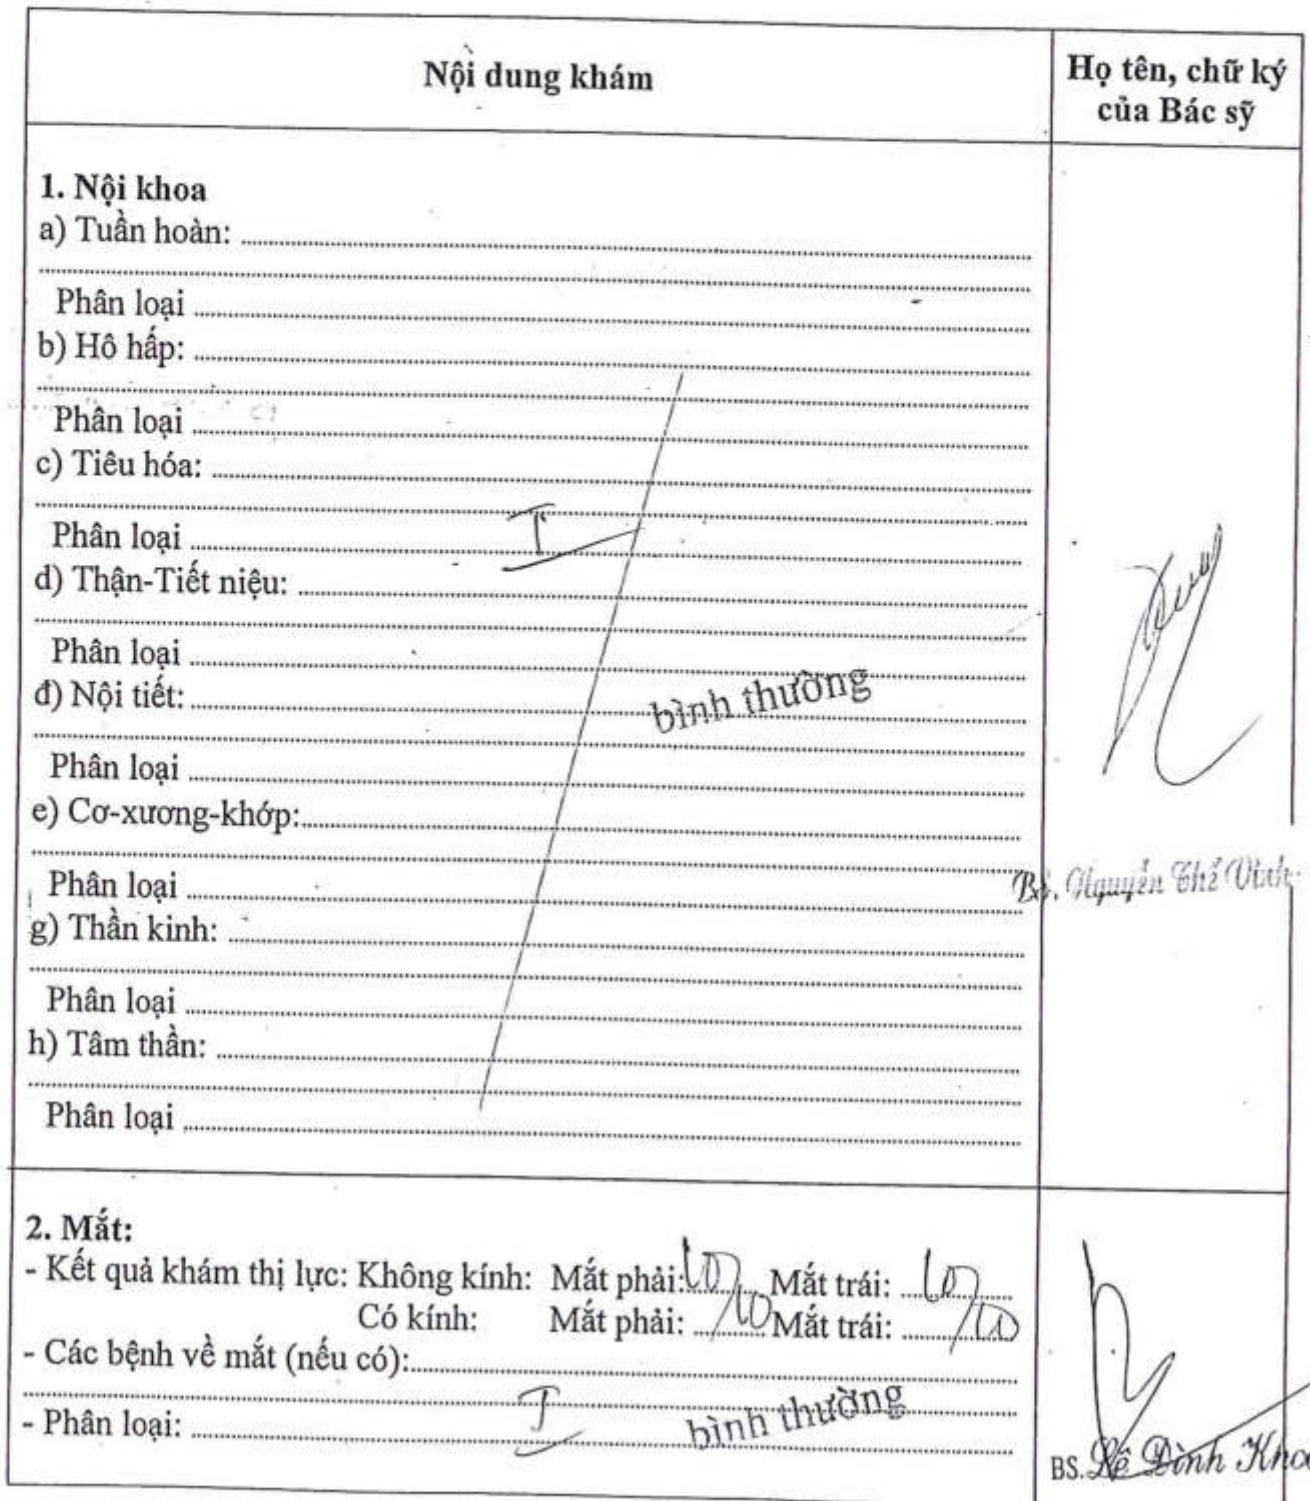 Nội dung khám
Họ tên, chữ ký
của Bác sỹ
1. Nội khoa
a) Tuần hoàn:
Phân loại
b) Hô hấp:
Phân loại
c) Tiêu hóa:
Phân loại
I
d) Thận-Tiết niệu:
Phân loại
đ) Nội tiết:
bình thường
Phân loại
e) Cơ-xương-khớp:
Phân loại
Bs. Nguyễn Thế Vinh
g) Thần kinh:
Phân loại
h) Tâm thần:
Phân loại
2. Mắt:
- Kết quả khám thị lực: Không kính: Mắt phải: 10/10 Mắt trái: 10/10
Có kính: Mắt phải: Mắt trái:
- Các bệnh về mắt (nếu có):
- Phân loại: I bình thường
BS. Lê Đình Khoa